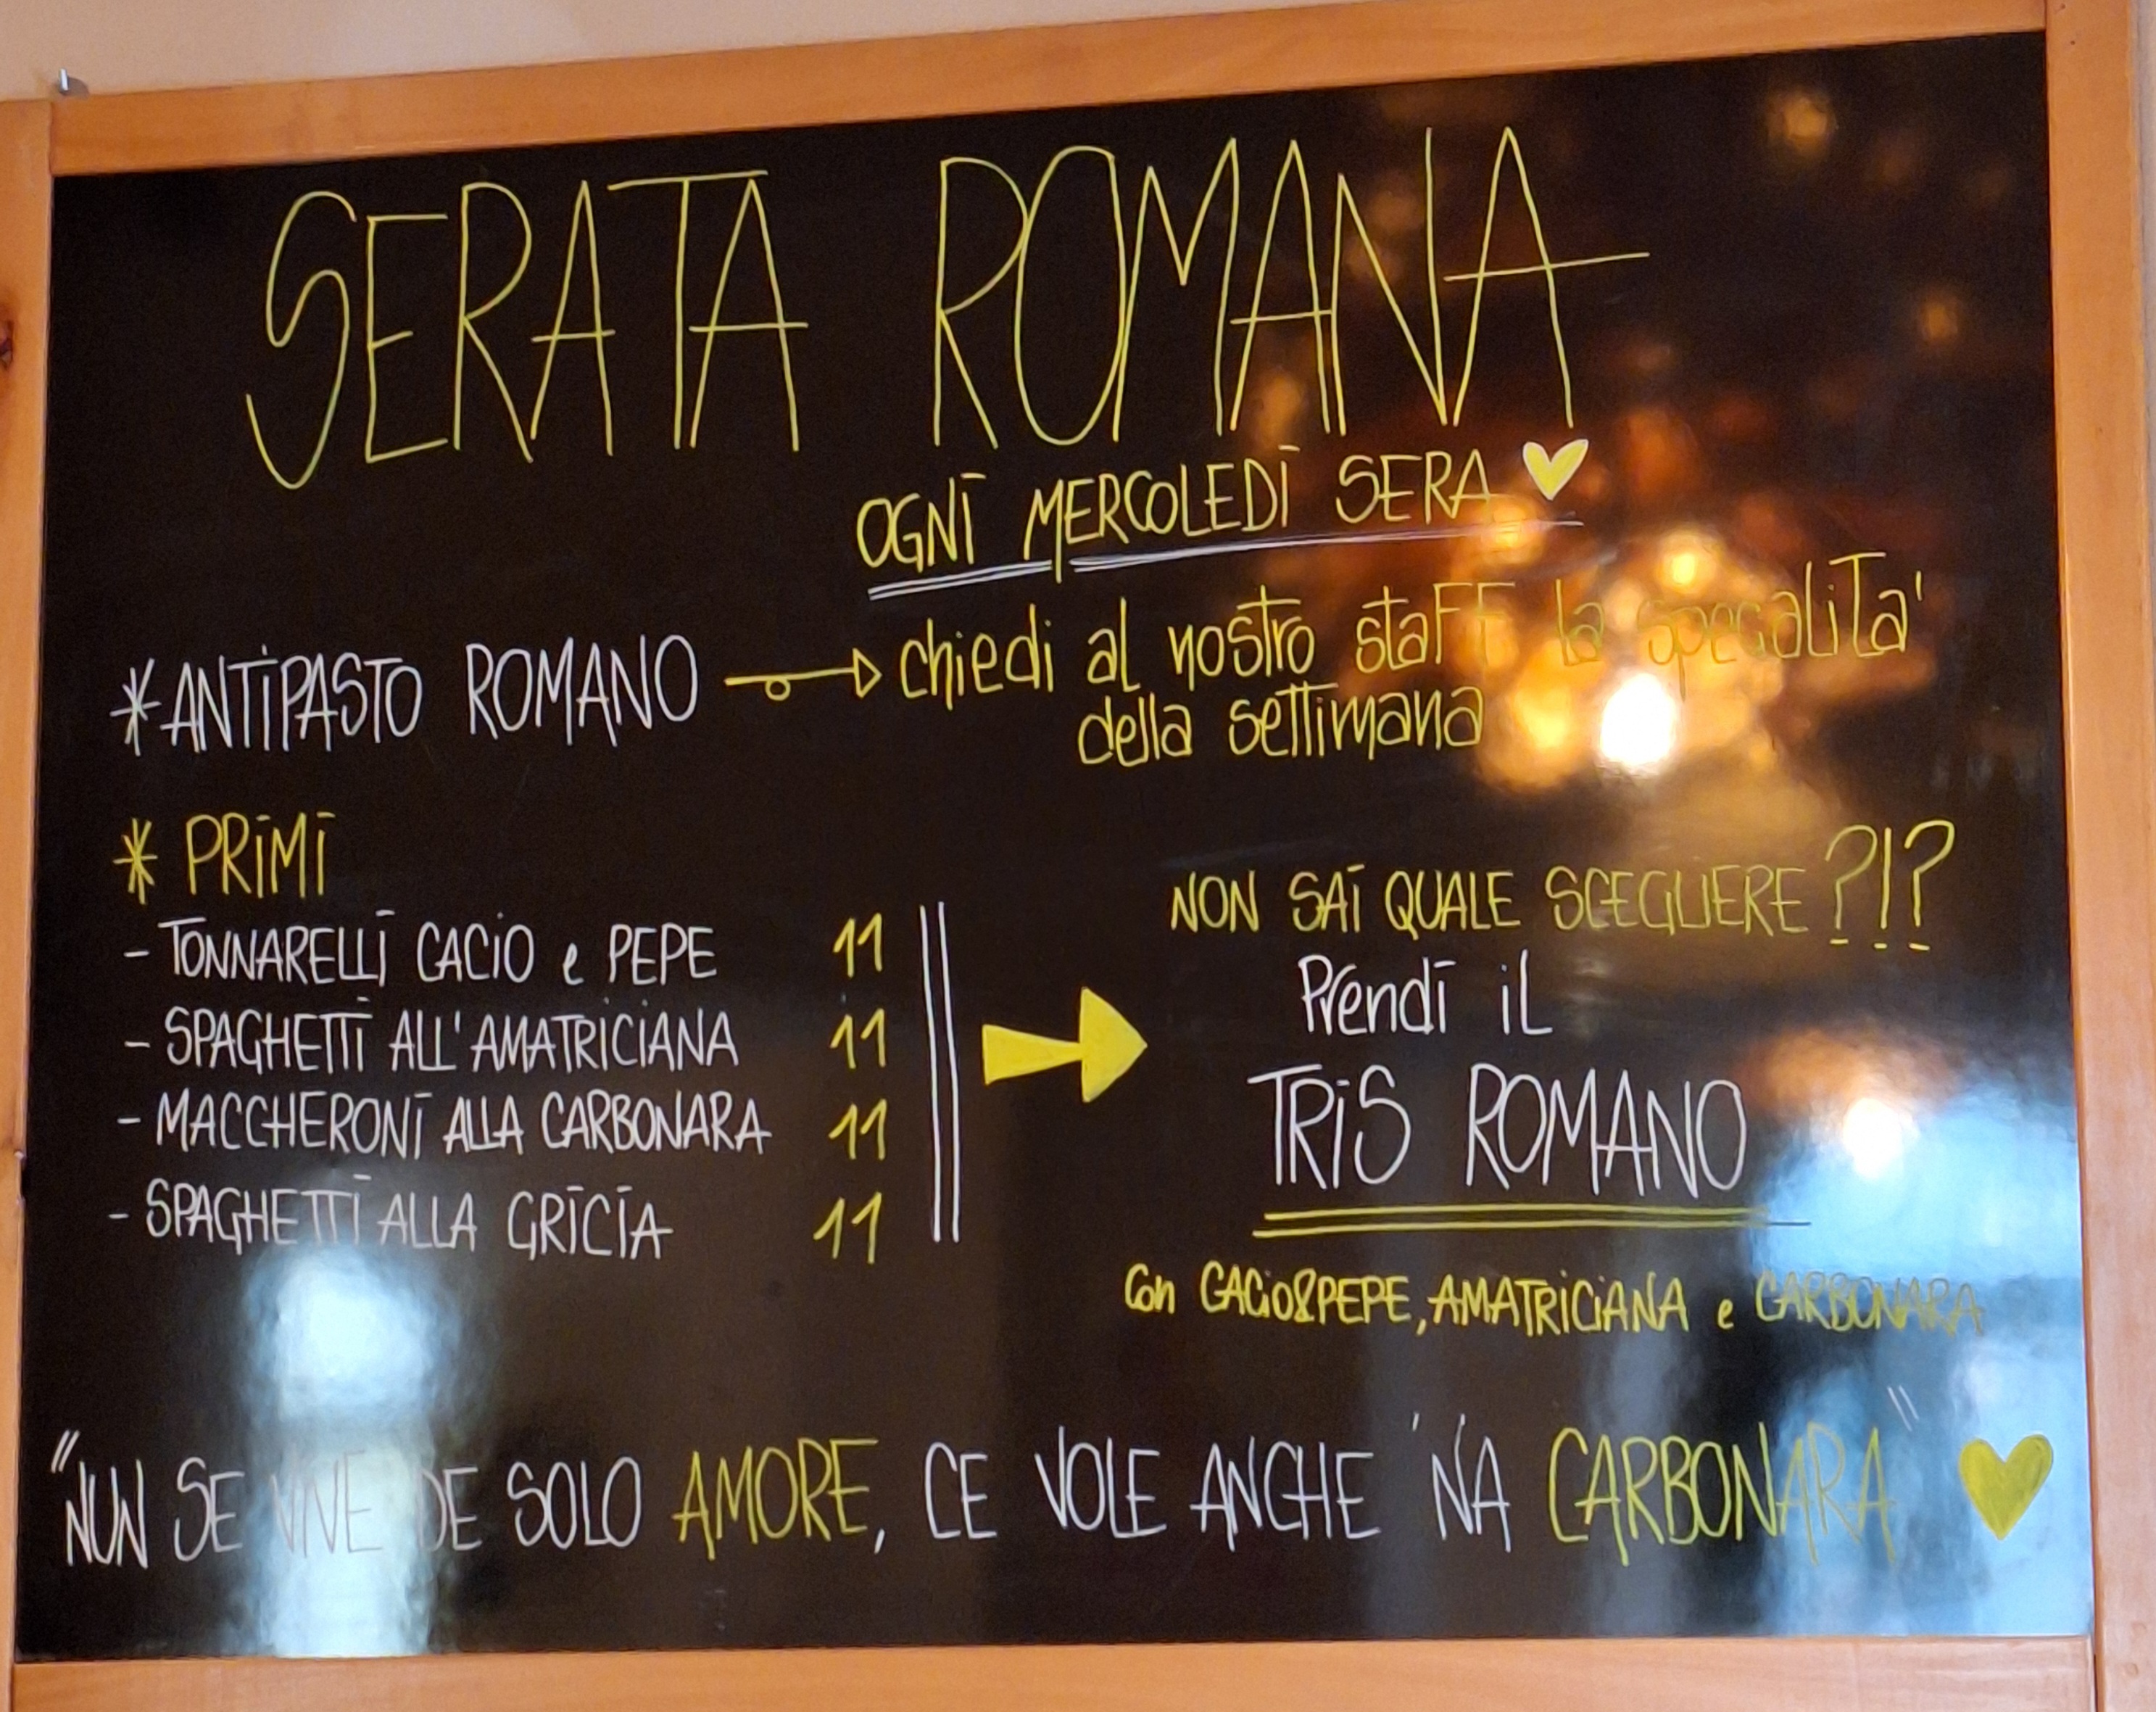 SERATA ROMANA
OGNI MERCOLEDÌ SERA
* ANTIPASTO ROMANO → chiedi al nostro staFF la specalità
della settimana
* PRIMI
- TONNARELLI CACIO e PEPE 11
- SPAGHETTI ALL'AMATRICIANA 11
- MACCHERONI ALLA CARBONARA 11
- SPAGHETTI ALLA GRICIA 11
NON SAI QUALE SCEGLIERE ?!?
Prendi iL
TRIS ROMANO
Con CACIO&PEPE, AMATRICIANA e CARBONARA
"NUN SE VIVE DE SOLO AMORE, CE VOLE ANCHE 'N'A CARBONARA"